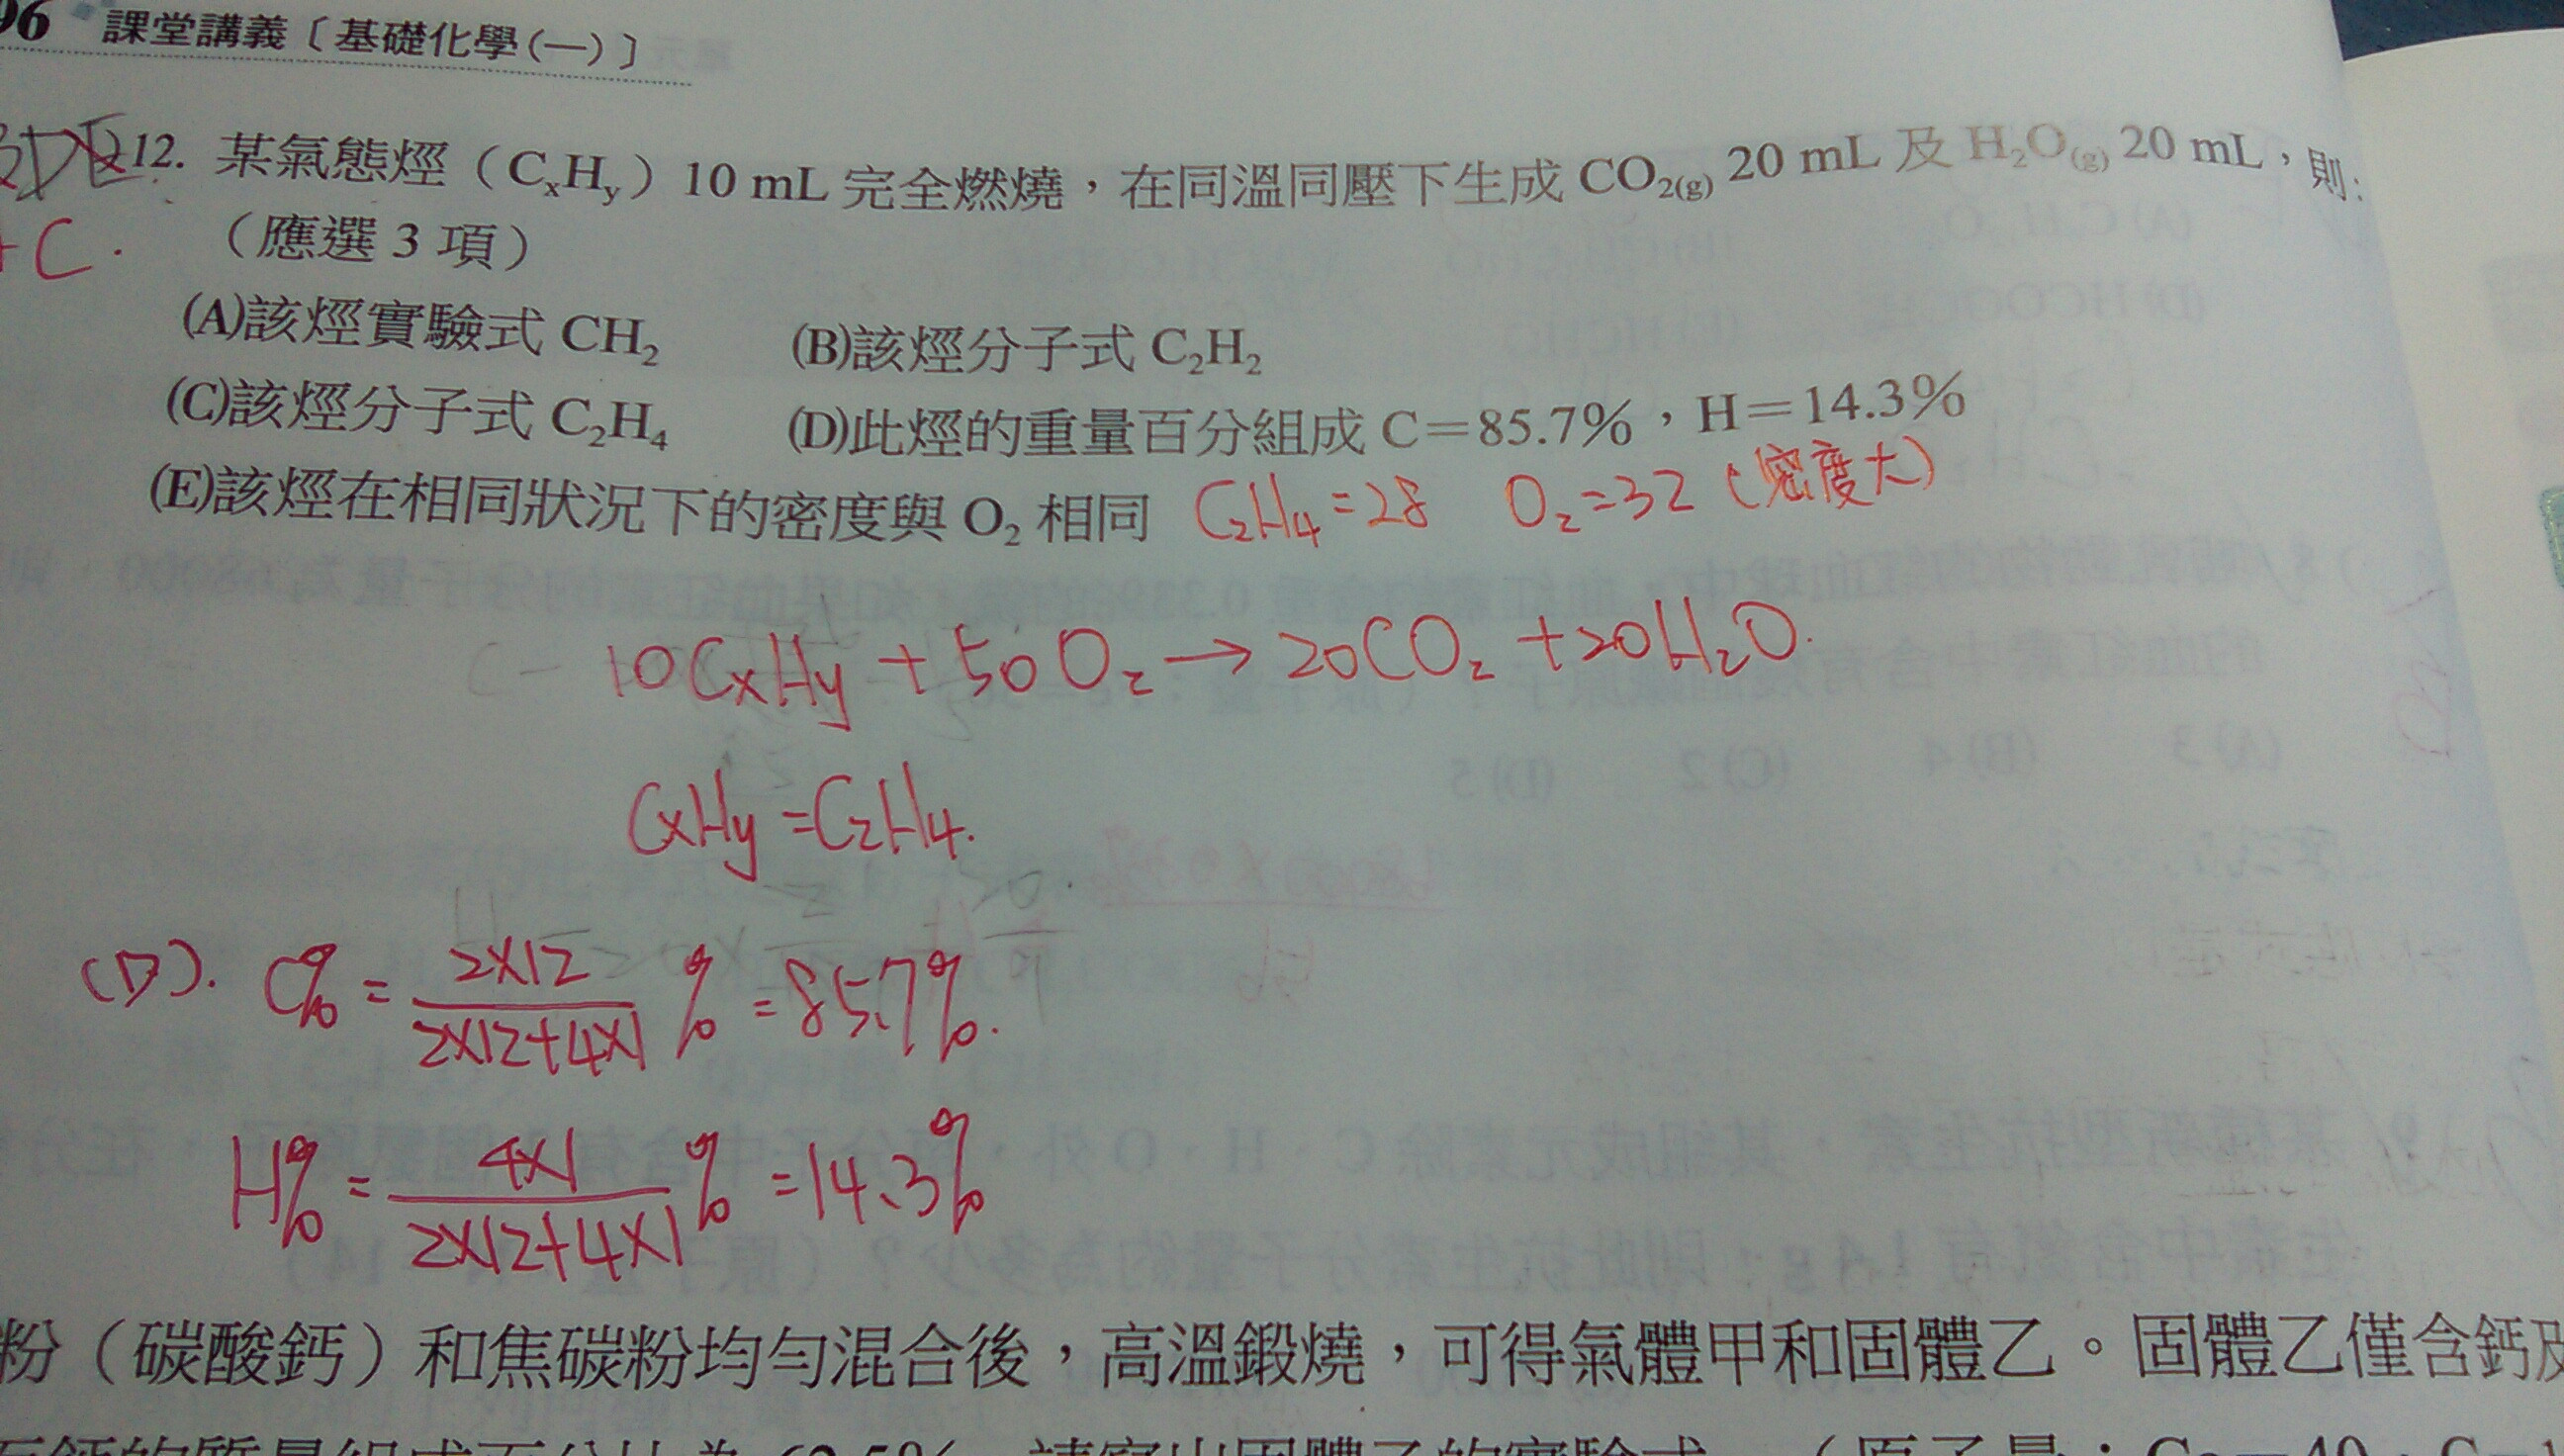 96 課堂講義〔基礎化學(一)〕
12. 某氣態烴（CxHy）10 mL 完全燃燒，在同溫同壓下生成 CO2(g) 20 mL 及 H2O(g) 20 mL，則：
+C.
（應選 3 項）
(A)該烴實驗式 CH2 (B)該烴分子式 C2H2
(C)該烴分子式 C2H4 (D)此烴的重量百分組成 C＝85.7%，H＝14.3%
(E)該烴在相同狀況下的密度與 O2 相同 C2H4=28 O2=32 (密度大)
10CxHy + 50O2 → 20CO2 + 20H2O.
CxHy = C2H4.
(D). C% = 2×12 / 2×12+4×1 % = 85.7%.
H% = 4×1 / 2×12+4×1 % = 14.3%
粉（碳酸鈣）和焦碳粉均勻混合後，高溫鍛燒，可得氣體甲和固體乙。固體乙僅含鈣及